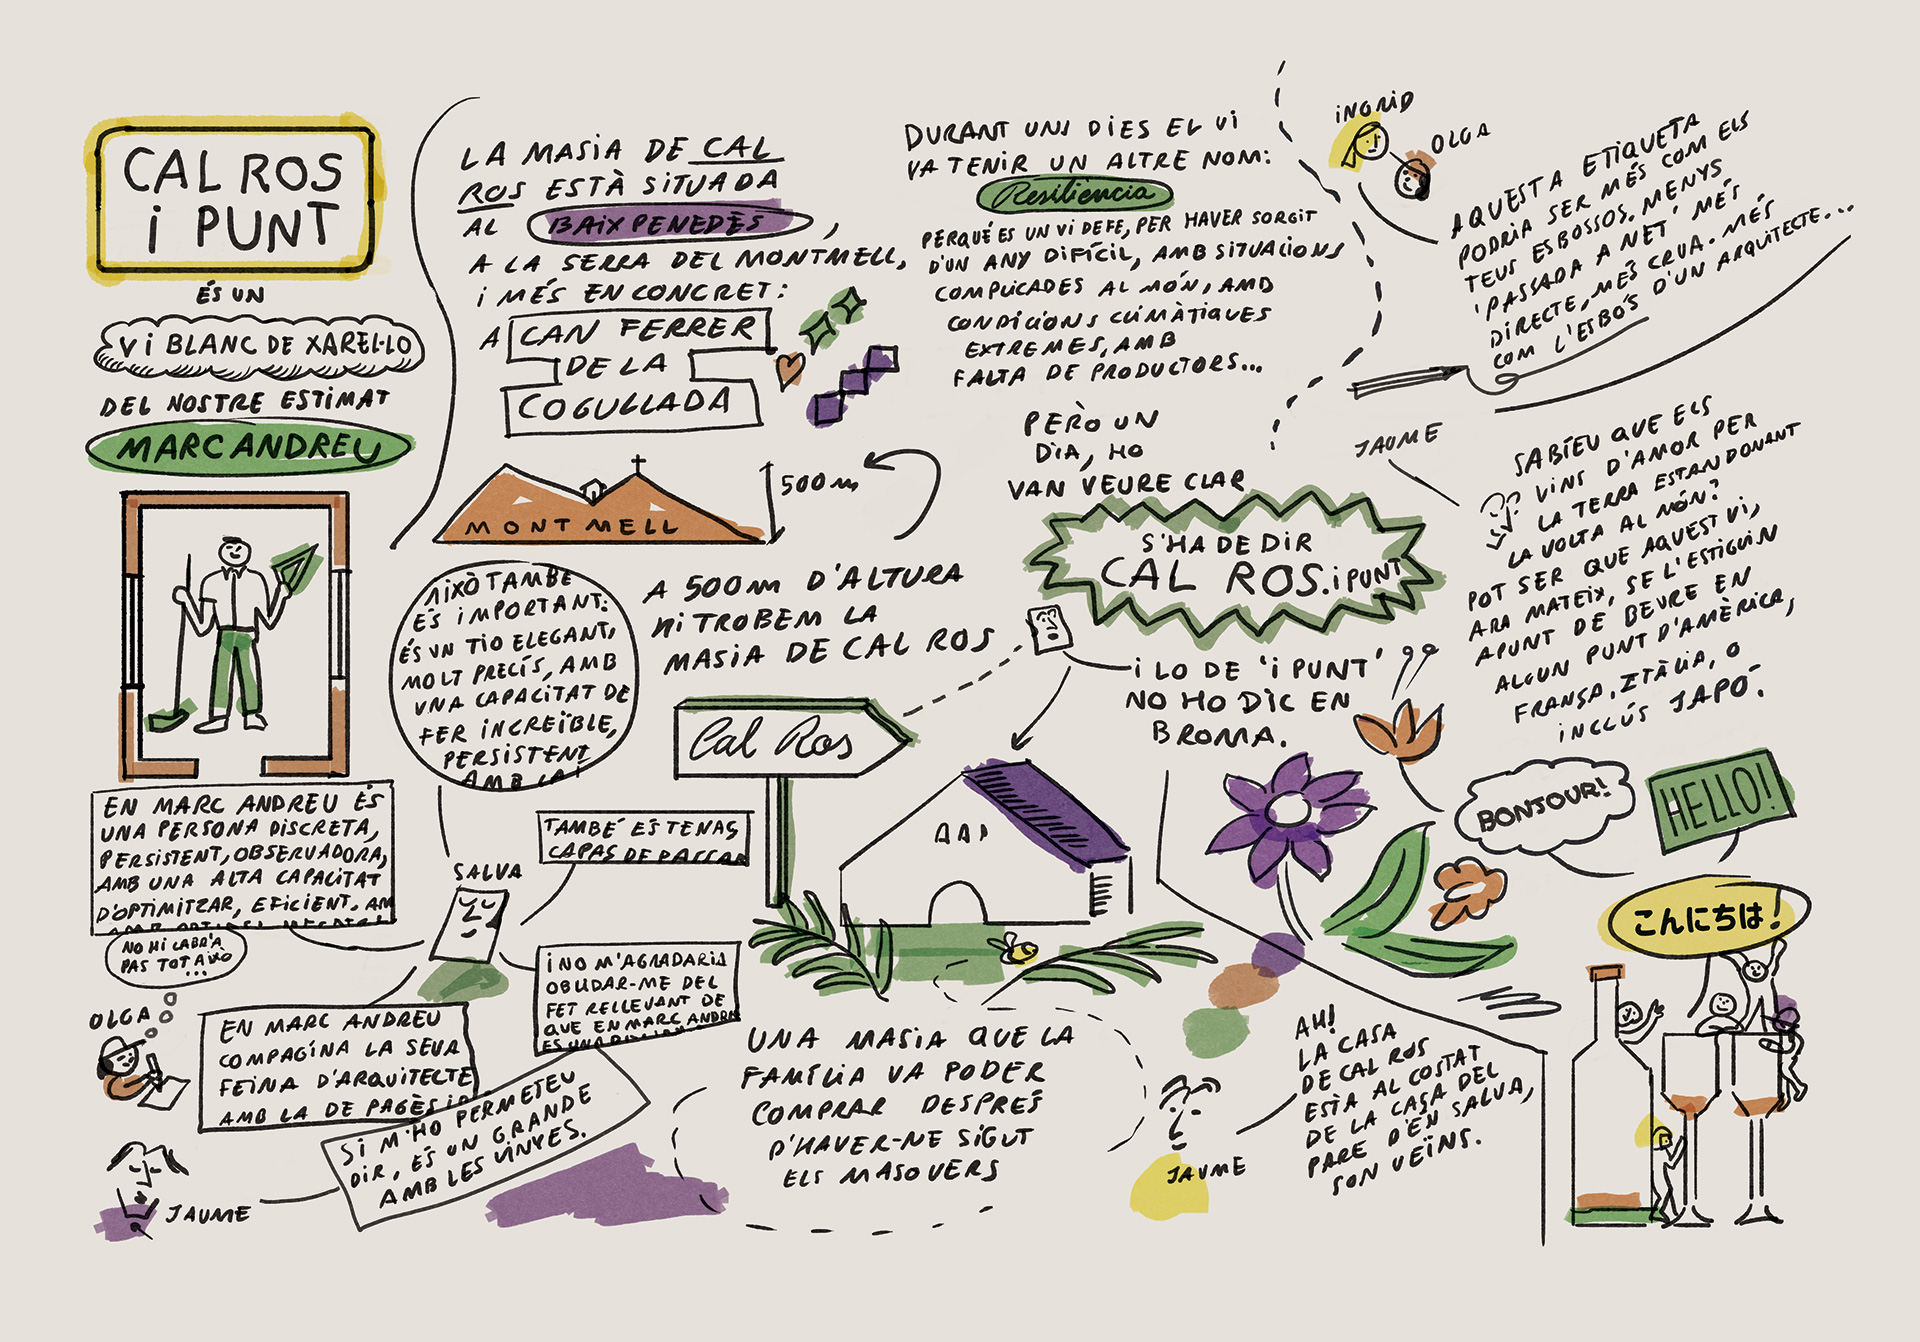 CAL ROS
i PUNT
ÉS UN
Vi BLANC DE XAREL·LO
DEL NOSTRE ESTIMAT
MARC ANDREU
EN MARC ANDREU ÉS
UNA PERSONA DISCRETA,
PERSISTENT, OBSERVADORA,
AMB UNA ALTA CAPACITAT
D'OPTIMITZAR, EFICIENT, AM
NO HI CABRÀ
PAS TOT AIXÒ
...
OLGA
EN MARC ANDREU
COMPAGINA LA SEVA
FEINA D'ARQUITECTE
AMB LA DE PAGÈS i
Si M'HO PERMETEU
DIR, ÉS UN GRANDE
AMB LES VINYES.
JAUME
LA MASIA DE CAL
ROS ESTÀ SITUADA
AL BAIX PENEDÈS,
A LA SERRA DEL MONTMELL,
i MÉS EN CONCRET:
A CAN FERRER
DE LA
COGULLADA
MONTMELL
500 m
AIXÒ TAMBÉ
ÉS IMPORTANT:
ÉS UN TIO ELEGANT,
MOLT PRECÍS, AMB
UNA CAPACITAT DE
FER INCREÏBLE,
PERSISTENT
AMB LA
A 500 m D'ALTURA
Hi TROBEM LA
MASIA DE CAL ROS
Cal Ros
SALVA
TAMBÉ ES TENAÇ
CAPAÇ DE PASSAR
i NO M'AGRADARIA
OBLIDAR-ME DEL
FET RELLEVANT DE
QUE EN MARC ANDRE
ÉS UNA
UNA MASIA QUE LA
FAMÍLIA VA PODER
COMPRAR DESPRÉS
D'HAVER-NE SIGUT
ELS MASOVERS
DURANT UNS DIES EL Vi
VA TENIR UN ALTRE NOM:
Resiliència
PERQUÈ ES UN Vi DEFE, PER HAVER SORGIT
D'UN ANY DIFÍCIL, AMB SITUACIONS
COMPLICADES AL MÓN, AMD
CONDICIONS CLIMÀTIQUES
EXTREMES, AMB
FALTA DE PRODUCTORS...
PERÒ UN
DIA, HO
VAN VEURE CLAR
S'HA DE DIR
CAL ROS. i PUNT
i LO DE 'i PUNT'
NO HO DIC EN
BROMA.
INGRID
OLGA
AQUESTA ETIQUETA
PODRIA SER MÉS COM ELS
TEUS ESBOSSOS. MENYS
'PASSADA A NET' MÉS
DIRECTE, MÉS CRUA. MÉS
COM L'ESBÓS D'UN ARQUITECTE...
JAUME
SABÍEU QUE ELS
VINS D'AMOR PER
LA TERRA ESTAN DONANT
LA VOLTA AL MÓN?
POT SER QUE AQUEST Vi,
ARA MATEIX, SE L'ESTIGUIN
APUNT DE BEURE EN
ALGUN PUNT D'AMÈRICA,
FRANÇA, ITÀLIA, O
INCLÚS JAPÓ.
BONJOUR!
HELLO!
こんにちは!
AH!
LA CASA
DE CAL ROS
ESTÀ AL COSTAT
DE LA CASA DEL
PARE D'EN SALVA,
SON VEÏNS.
JAUME